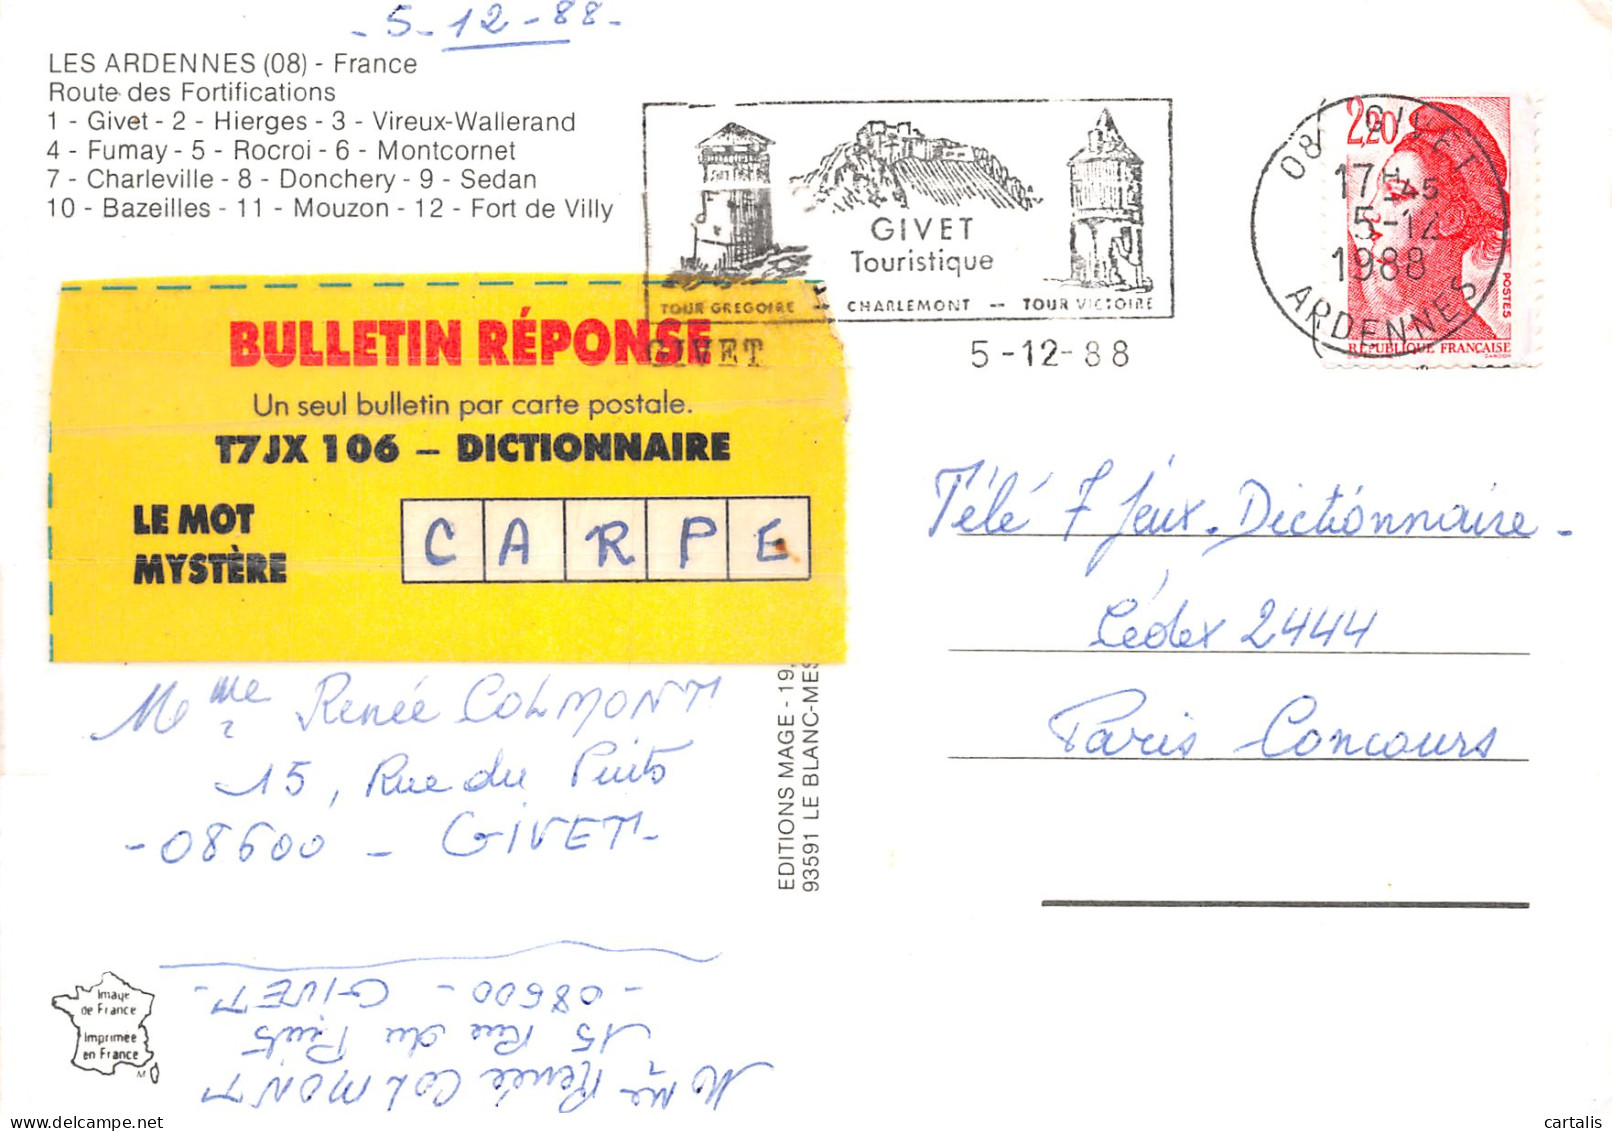 - 5 - 12 - 88 -
LES ARDENNES (08) - France
Route des Fortifications
1 - Givet - 2 - Hierges - 3 - Vireux-Wallerand
4 - Fumay - 5 - Rocroi - 6 - Montcornet
7 - Charleville - 8 - Donchery - 9 - Sedan
10 - Bazeilles - 11 - Mouzon - 12 - Fort de Villy
GIVET
Touristique
TOUR GREGOIRE - CHARLEMONT - TOUR VICTOIRE
GIVET
5-12-88
08 GIVET
17H45
5-12
1988
ARDENNES
2,20
POSTES
REPUBLIQUE FRANÇAISE
GANDON
BULLETIN RÉPONSE
Un seul bulletin par carte postale.
T7JX 106 – DICTIONNAIRE
LE MOT
MYSTÈRE
C A R P E
Télé 7 Jeux - Dictionnaire -
Cédex 2444
Paris Concours
Mme Renée COLMONT
15, Rue du Puits
- 08600 - GIVET -
EDITIONS MAGE - 19
93591 LE BLANC-MES
Image
de France
Imprimée
en France
M
Mme Renée COLMONT
15 Rue du Puits
- 08600 - GIVET -
cartalis